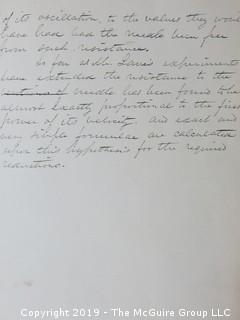 of its oscillation, to the values they would
have had had the needle been free
from such resistance.
So far as Mr. experiments
have extended the resistance to the
needle has been found to be
almost exactly proportional to the first
power of its velocity, and exact and
very simple formulae are calculated
upon this hypothesis for the required
reductions.
Copyright 2019 - The McGuire Group LLC